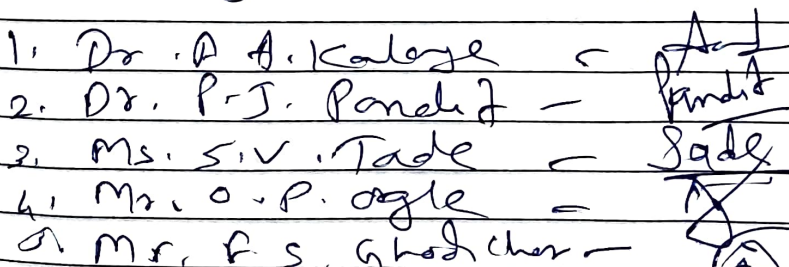 1. Dr. A A. Kalaye -
2. Dr. P.J. Pandit - Pandit
3. Ms. S.V. Tade - Sade
4. Mr. O.P. ogle -
5. Mr. F. S. -